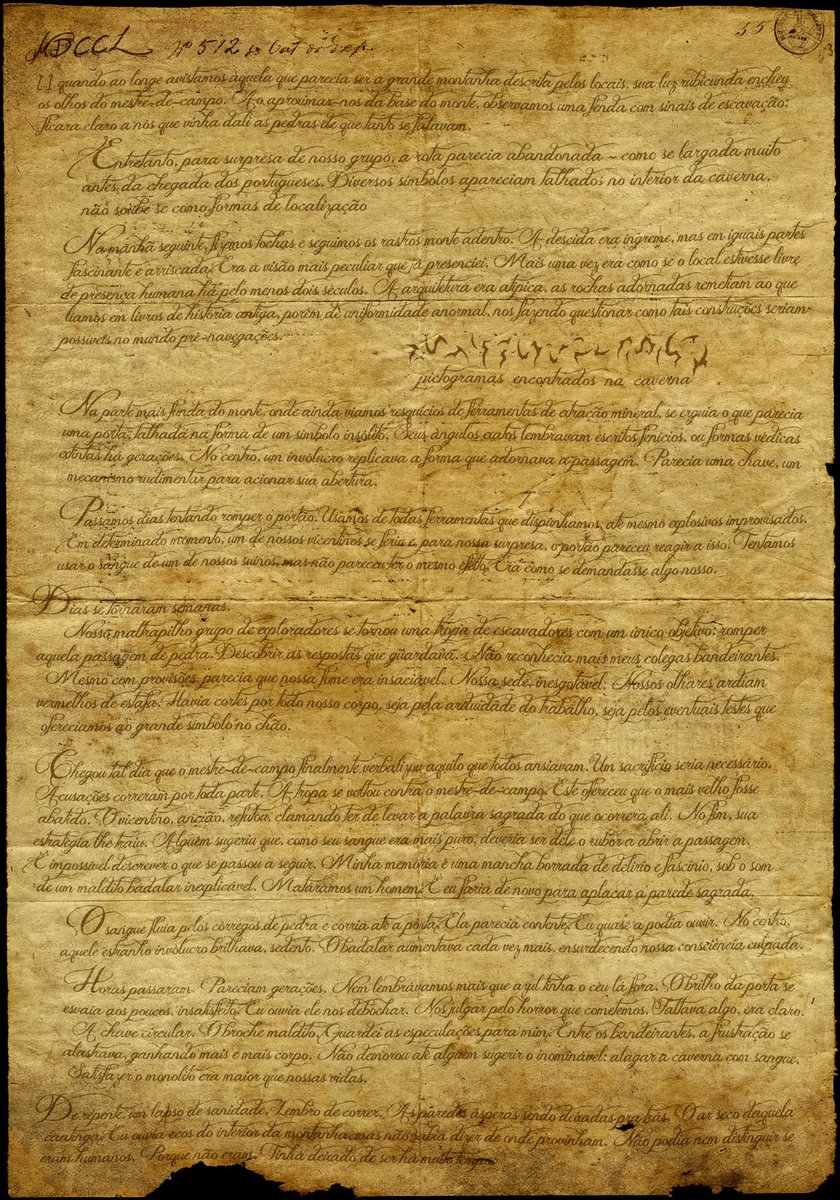 MDCCL Nº 512
55
[...] quando ao longe avistamos aquela que parecia ser a grande montanha descrita pelos locais, sua luz rubicunda encheu
os olhos do mestre-de-campo. Ao aproximar-nos da base do monte, observamos uma fenda com sinais de escavação;
ficara claro a nós que vinha dali as pedras de que tanto se falavam.
Entretanto, para surpresa de nosso grupo, a rota parecia abandonada - como se largada muito
antes da chegada dos portugueses. Diversos símbolos apareciam talhados no interior da caverna,
não soube se como formas de localização
Na manhã seguinte, fizemos tochas e seguimos os rastros monte adentro. A descida era íngreme, mas em iguais partes
fascinante e arriscada. Era a visão mais peculiar que já presenciei. Mais uma vez era como se o local estivesse livre
de presença humana há pelo menos dois séculos. A arquitetura era atípica, as rochas adornadas remetiam ao que
líamos em livros de história antiga, porém de uniformidade anormal, nos fazendo questionar como tais construções seriam
possíveis no mundo pré-navegações.
pictogramas encontrados na caverna
Na parte mais funda do monte, onde ainda víamos resquícios de ferramentas de extração mineral, se erguia o que parecia
uma porta, talhada na forma de um símbolo insólito. Seus ângulos exatos lembravam escritos fenícios, ou formas védicas
extintas há gerações. No centro, um invólucro replicava a forma que adornava a passagem. Parecia uma chave, um
mecanismo rudimentar para acionar sua abertura.
Passamos dias tentando romper o portão. Usamos de todas ferramentas que dispúnhamos, até mesmo explosivos improvisados.
Em determinado momento, um de nossos vicentinos se feriu e, para nossa surpresa, o portão pareceu reagir a isso. Tentamos
usar o sangue de um de nossos suínos, mas não pareceu ter o mesmo efeito. Era como se demandasse algo nosso.
Dias se tornaram semanas.
Nosso maltrapilho grupo de exploradores se tornou uma tropa de escavadores com um único objetivo: romper
aquela passagem de pedra. Descobrir as respostas que guardava. Não reconhecia mais meus colegas bandeirantes.
Mesmo com provisões, parecia que nossa fome era insaciável. Nossa sede, inesgotável. Nossos olhares ardiam
vermelhos de estafa. Havia cortes por todo nosso corpo, seja pela arduidade do trabalho, seja pelos eventuais testes que
oferecíamos ao grande símbolo no chão.
Chegou tal dia que o mestre-de-campo finalmente verbalizou aquilo que todos ansiavam. Um sacrifício seria necessário.
Acusações correram por toda parte. A tropa se voltou contra o mestre-de-campo. Este ofereceu que o mais velho fosse
abatido. O vicentino, ancião, refutou, clamando ter de levar a palavra sagrada do que ocorrera ali. No fim, sua
estratégia lhe traiu. Alguém sugeriu que, como seu sangue era mais puro, deveria ser dele o rubor a abrir a passagem.
É impossível descrever o que se passou a seguir. Minha memória é uma mancha borrada de delírio e fascínio, sob o som
de um maldito badalar inexplicável. Matáramos um homem. E eu faria de novo para aplacar a parede sagrada.
O sangue fluía pelos córregos de pedra e corria até a porta. Ela parecia contente. Eu quase a podia ouvir. No centro,
aquele estranho invólucro brilhava, sedento. O badalar aumentava cada vez mais, ensurdecendo nossa consciência culpada.
Horas passaram. Pareciam gerações. Nem lembrávamos mais que azul tinha o céu lá fora. O brilho da porta se
esvaía aos poucos, insatisfeito. Eu ouvia ele nos debochar. Nos julgar pelo horror que cometemos. Faltava algo, era claro.
A chave circular. O broche maldito. Guardei as especulações para mim. Entre os bandeirantes, a frustração se
alastrava, ganhando mais e mais corpo. Não demorou até alguém sugerir o inominável: alagar a caverna com sangue.
Satisfazer o monolito era maior que nossas vidas.
De repente, um lapso de sanidade. Lembro de correr. As paredes ásperas sendo deixadas pra trás. O ar seco daquela
caatinga. Eu ouvia ecos do interior da montanha, mas não sabia dizer de onde provinham. Não podia nem distinguir se
eram humanos. Porque não eram. Tinha deixado de ser há muito tempo